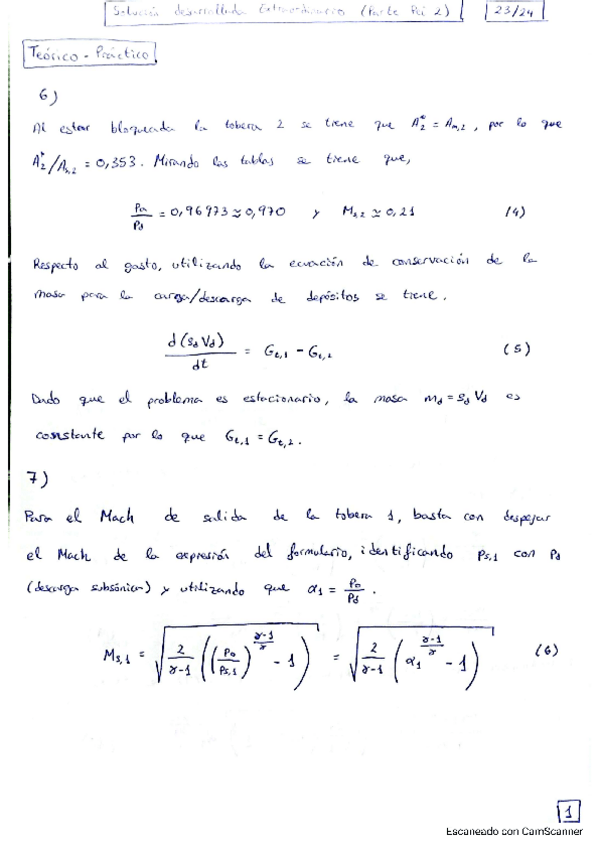 Solución desarrollada Extraordinario (Parte Pei 2) 23/24
Teórico-Práctico
6)
Al estar bloqueada la tobera 2 se tiene que A₂* = Aₘ,₂, por lo que
A₂*/Aₛ,₂ = 0,353. Mirando las tablas se tiene que,
pₐ/p_d = 0,96973 ≃ 0,970 y Mₛ,₂ ≃ 0,21 (4)
Respecto al gasto, utilizando la ecuación de conservación de la
masa para la carga/descarga de depósitos se tiene,
d(ρ_d V_d)/dt = G_t,1 - G_t,2 (5)
Dado que el problema es estacionario, la masa m_d = ρ_d V_d es
constante por lo que G_t,1 = G_t,2.
7)
Para el Mach de salida de la tobera 1, basta con despejar
el Mach de la expresión del formulario, identificando p_s,1 con p_d
(descarga subsónica) y utilizando que α₁ = p₀/p_d.
M_s,1 = √(2/(γ-1) ((p₀/p_s,1)^((γ-1)/γ) - 1)) = √(2/(γ-1) (α₁^((γ-1)/γ) - 1)) (6)
1
Escaneado con CamScanner